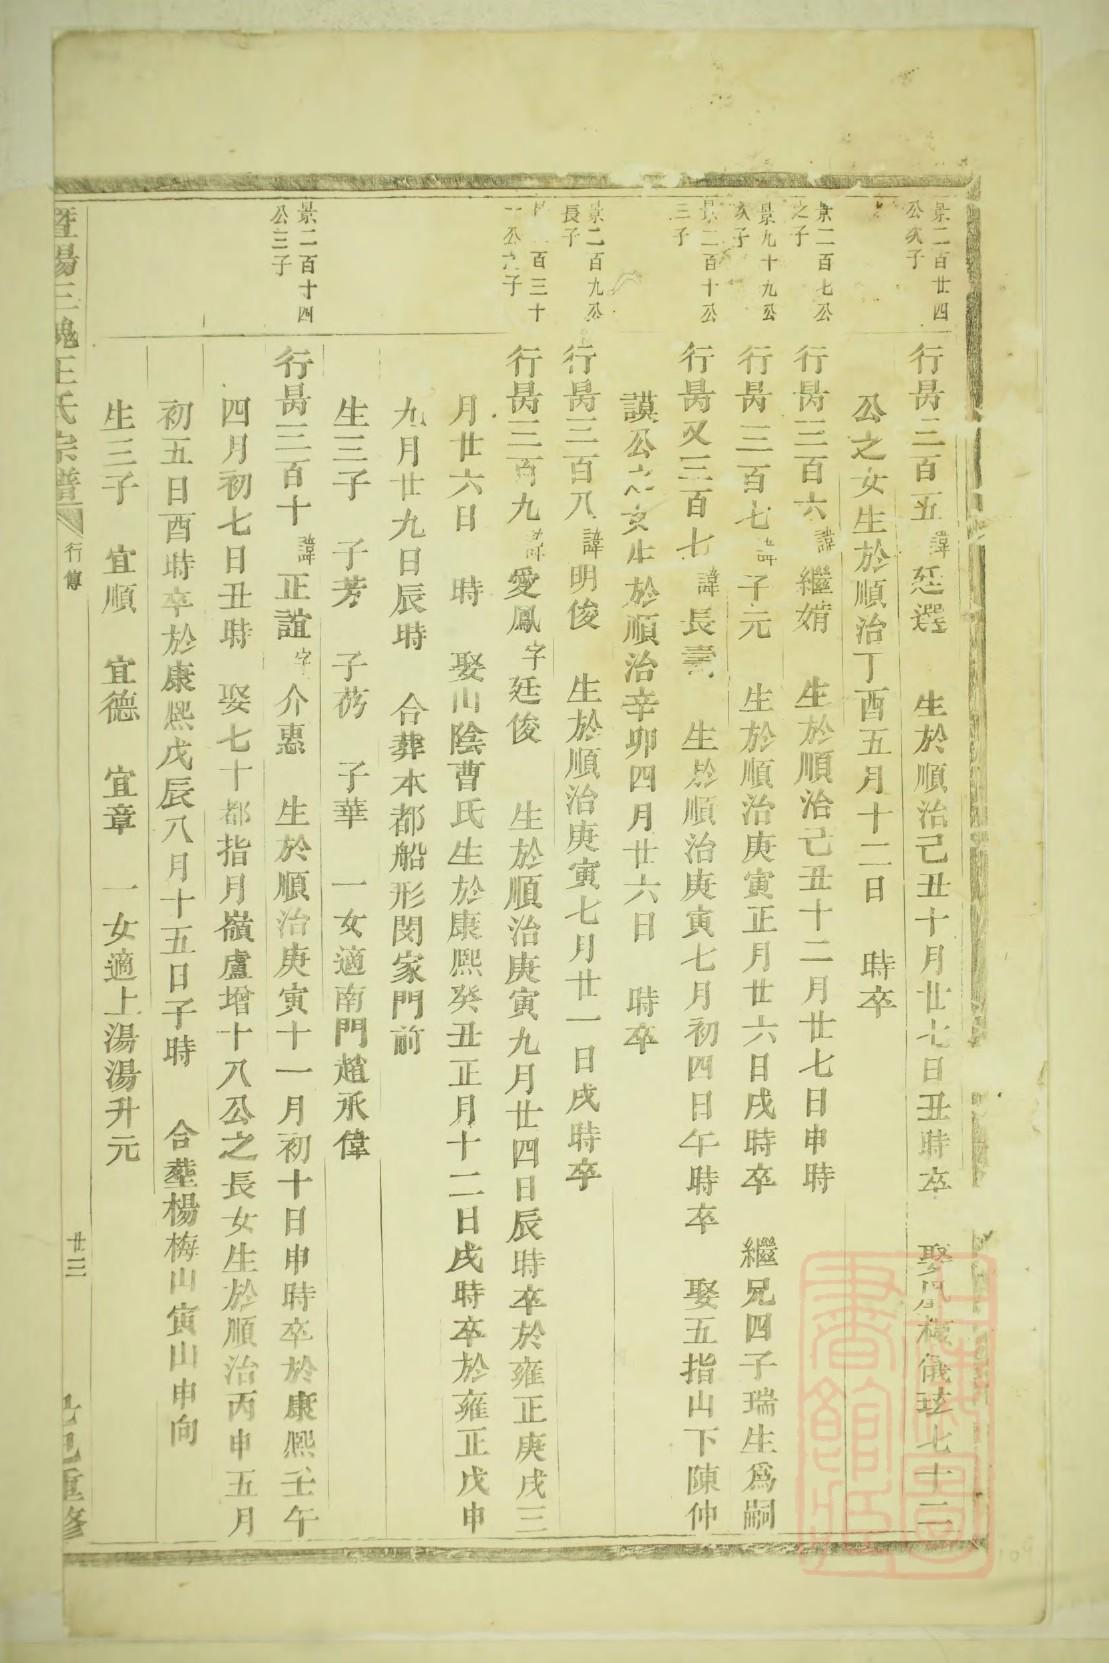 景二百廿四
公次子
行昺三百五諱廷選 生於順治己丑十月廿七日丑時卒 娶 儀 七十二
公之女生於順治丁酉五月十二日 時卒
景二百七公
之子
行昺三百六諱繼娋 生於順治己丑十二月廿七日申時
景九十九公
次子
行昺三百七諱子元 生於順治庚寅正月廿六日戌時卒 繼兄四子瑞生爲嗣
景二百十公
三子
行昺又三百七諱長壽 生於順治庚寅七月初四日午時卒 娶五指山下陳仲
謨公之女生於順治辛卯四月廿六日 時卒
景二百九公
長子
行昺三百八諱明俊 生於順治庚寅七月廿一日戌時卒
百三十
一公六子
行昺三百九諱愛鳳字廷俊 生於順治庚寅九月廿四日辰時卒於雍正庚戌三
月廿六日 時 娶山陰曹氏生於康熙癸丑正月十二日戌時卒於雍正戊申
九月廿九日辰時 合葬本都船形閔家門前
生三子 子芳 子茒 子華 一女適南門趙承偉
景二百十四
公三子
行昺三百十諱正誼字介惠 生於順治庚寅十一月初十日申時卒於康熙壬午
四月初七日丑時 娶七十都指月嶺盧增十八公之長女生於順治丙申五月
初五日酉時卒於康熙戊辰八月十五日子時 合塟楊梅山寅山申向
生三子 宜順 宜德 宜章 一女適上湯湯升元
暨陽三槐王氏宗譜 行傳 廿三 重修